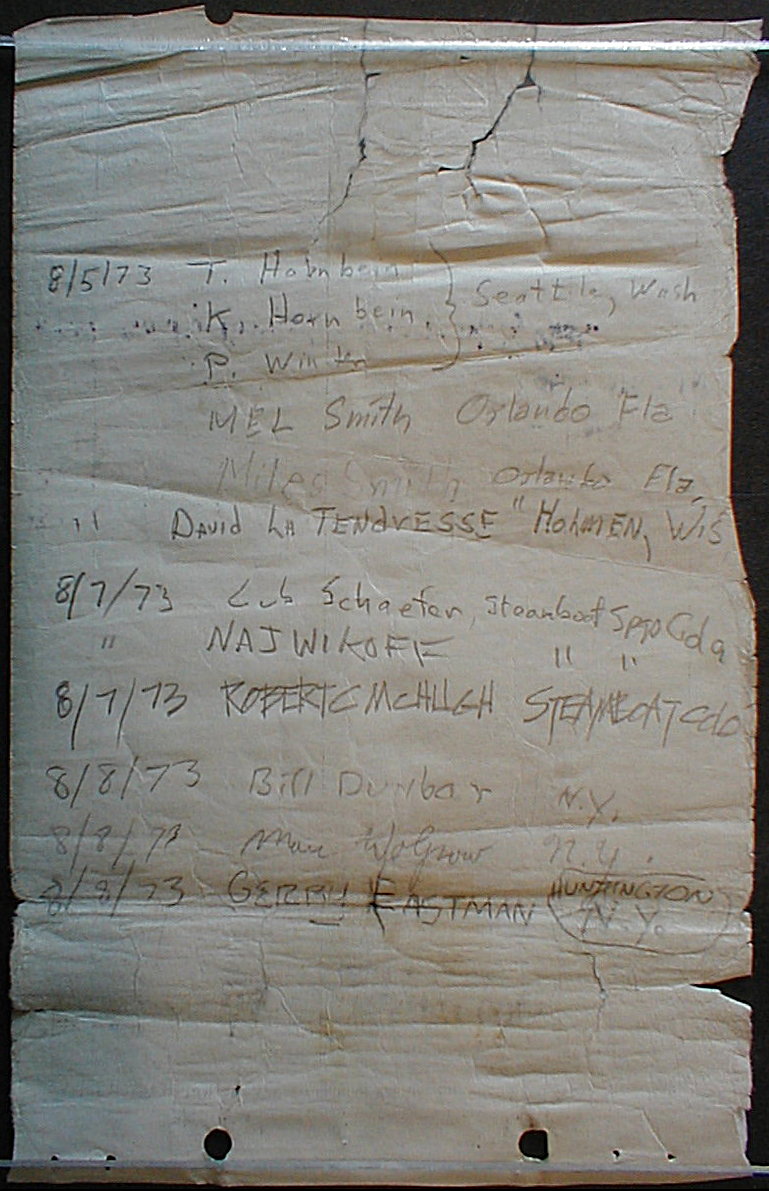 8/5/73 T. Hornbein } Seattle, Wash
K. Hornbein
P. Winter
MEL Smith Orlando Fla
Miles Smith Orlando Fla,
" DAVID LA TENDRESSE " HOLMEN, WIS
8/7/73 Schaefer, Steamboat Spgs Colo
" " "
8/7/73 ROBERT C MCHUGH STEAMBOAT Colo
8/8/73 Bill Dunbar N.Y.
8/8/73 N.Y.
8/8/73 GERRY EASTMAN HUNTINGTON
N.Y.